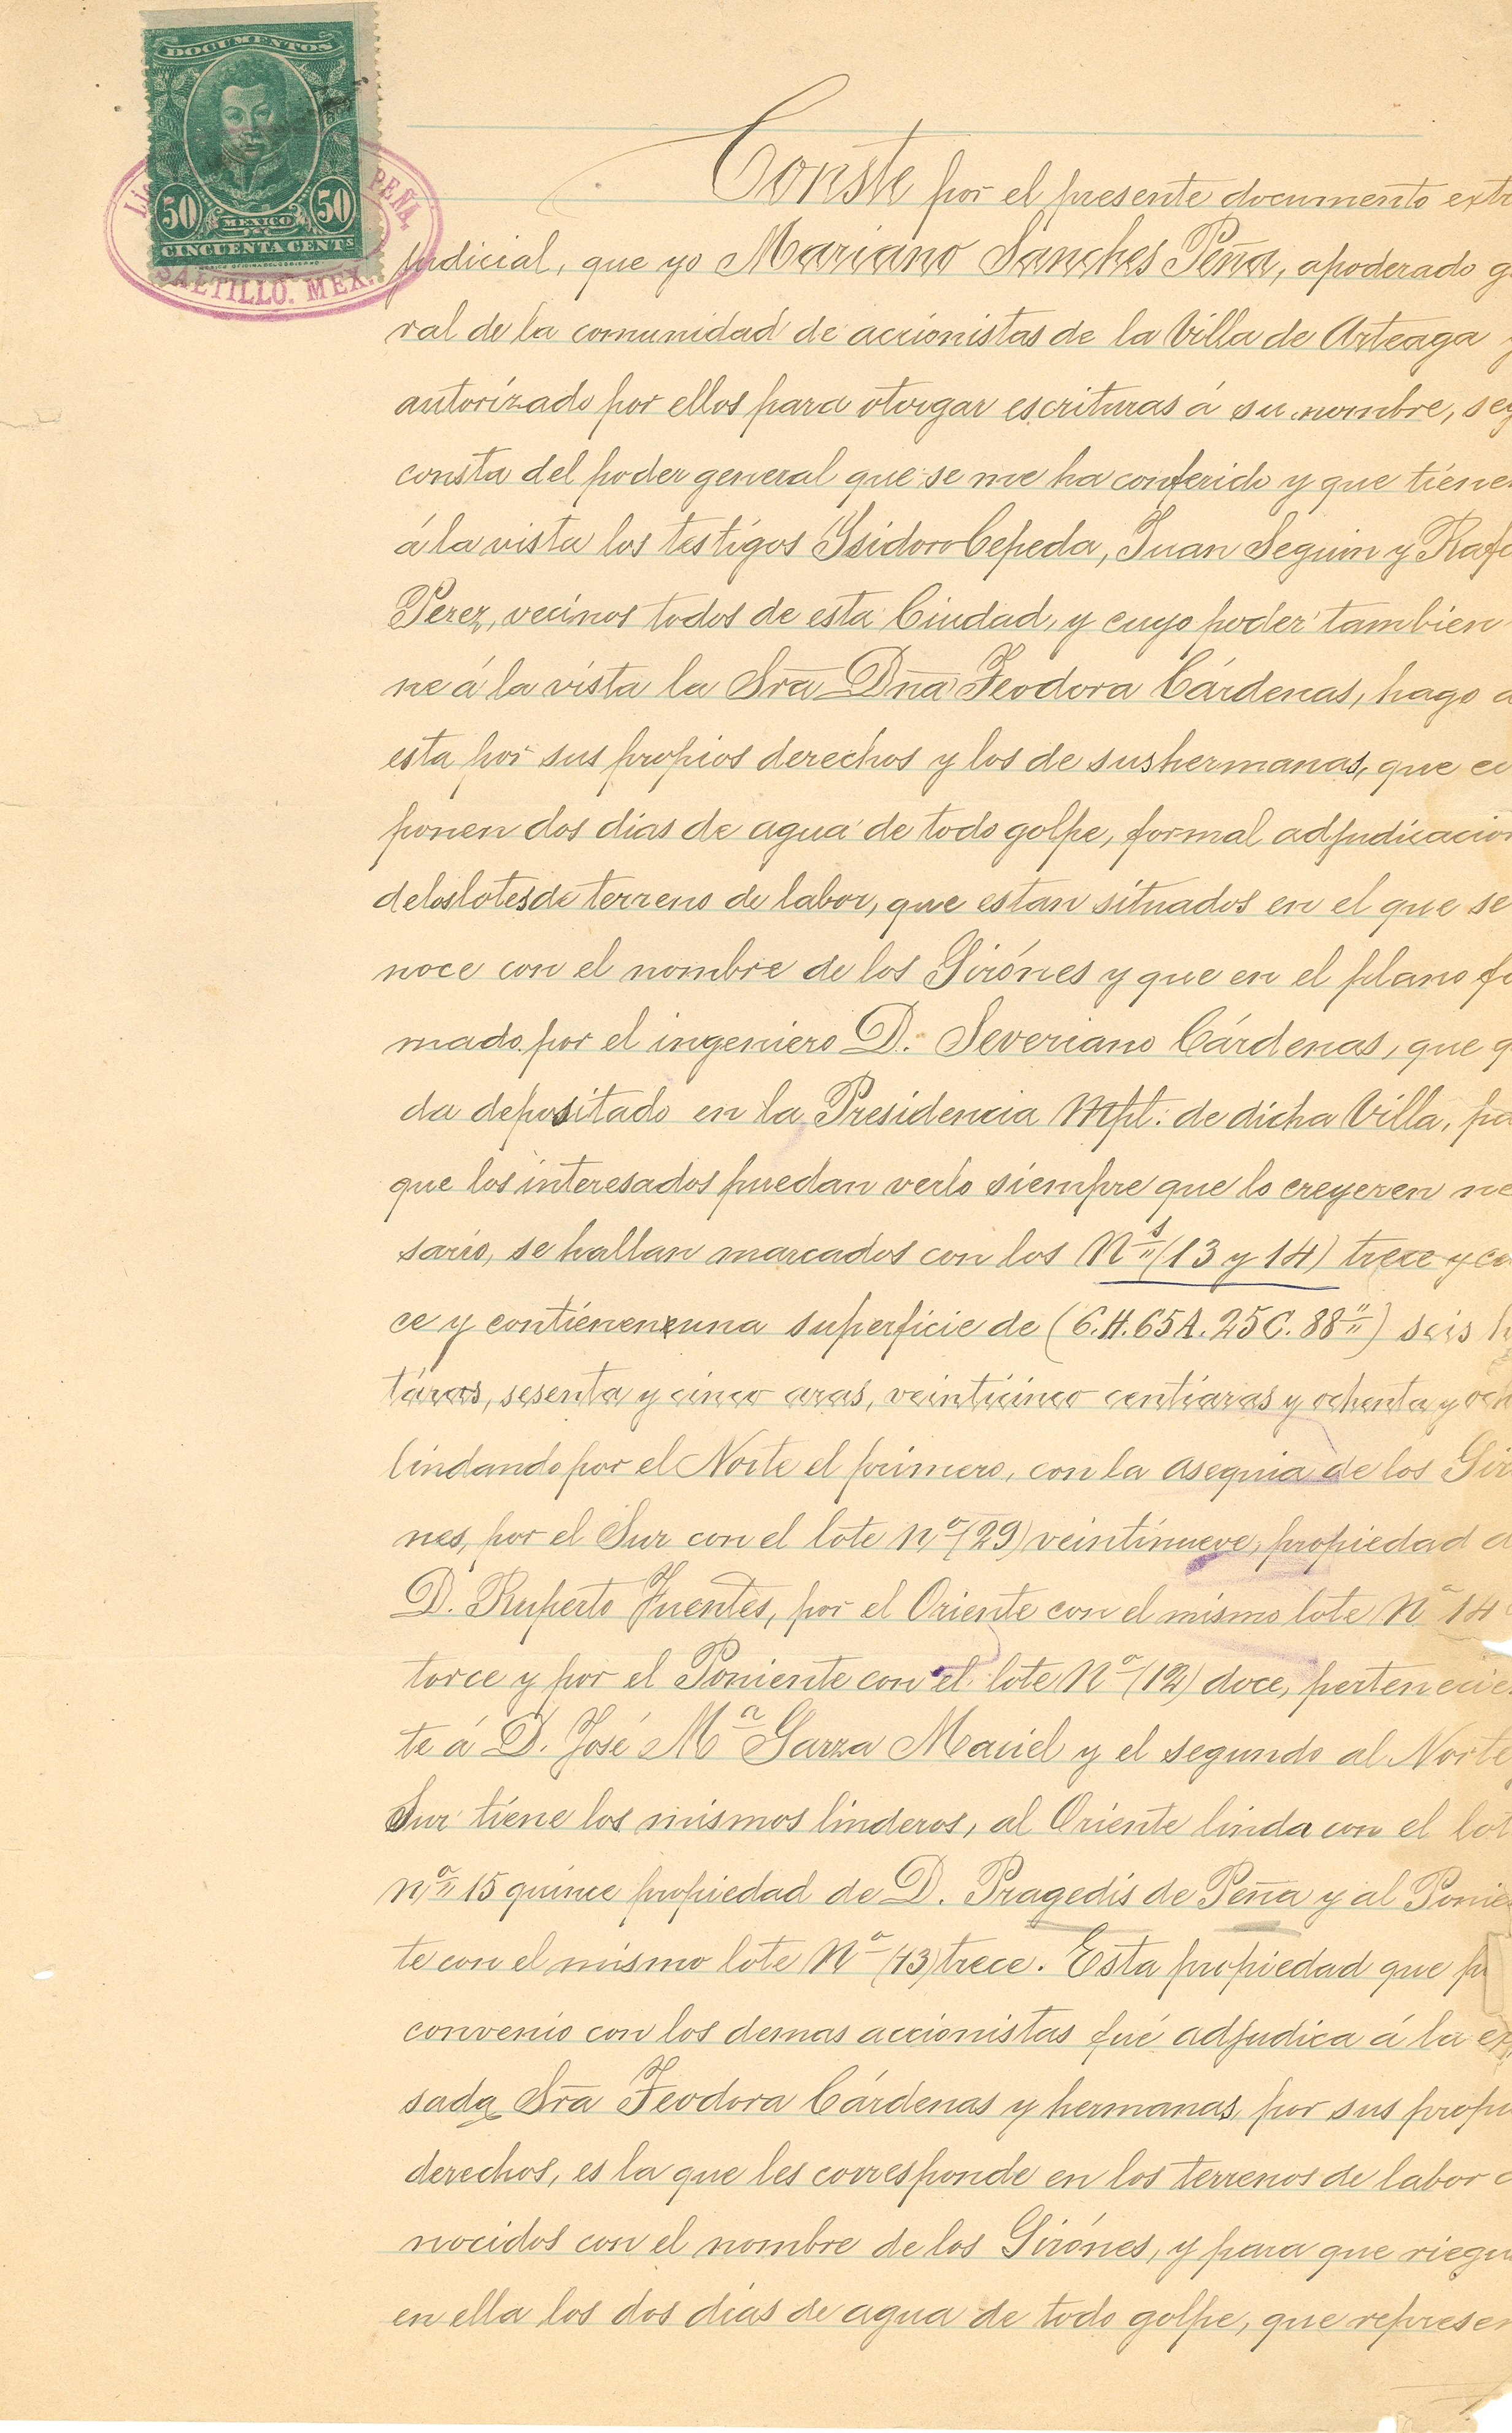 DOCUMENTOS
50 MEXICO 50
CINCUENTA CENTS
PEÑA.
SALTILLO. MEX.
Conste por el presente documento extr
judicial, que yo Mariano Sanches Peña, apoderado g
ral de la comunidad de accionistas de la Villa de Arteaga y
autorizado por ellos para otorgar escrituras á su nombre, seg
consta del poder general que se me ha conferido y que tiene
á la vista los testigos Ysidoro Cepeda, Juan Seguin y Rafa
Perez, vecinos todos de esta Ciudad, y cuyo poder tambien
ne á la vista la Sra Dña Feodora Cárdenas, hago a
esta por sus propios derechos y los de sus hermanas, que co
ponen dos dias de agua de todo golpe, formal adjudicacion
de los lotes de terreno de labor, que estan situados en el que se
noce con el nombre de los Girónes y que en el plano fo
mado por el ingeniero D. Severiano Cárdenas, que q
da depositado en la Presidencia Mpl: de dicha Villa, pa
que los interesados puedan verlo siempre que lo creyeren ne
sario, se hallan marcados con los Ns (13 y 14) trece y ca
ce y contienen una superficie de (6.H.65A.25C.88") seis h
táras, sesenta y cinco aras, veinticinco centiaras y ochenta y och
lindando por el Norte el primero, con la asequia de los Giro
nes, por el Sur con el lote no (29) veintinueve, propiedad d
D. Ruperto Fuentes, por el Oriente con el mismo lote No 14
torce y por el Poniente con el lote No (12) doce, pertenecien
te á D. José Ma Garza Maciel y el segundo al Norte y
Sur tiene los mismos linderos, al Oriente linda con el lot
no 15 quince propiedad de D. Pragedis de Peña y al Ponien
te con el mismo lote No (13) trece. Esta propiedad que p
convenio con los demas accionistas fué adjudica á la ex
sada Sra Feodora Cárdenas y hermanas por sus propi
derechos, es la que les corresponde en los terrenos de labor c
nocidos con el nombre de los Girónes, y para que riegu
en ella los dos dias de agua de todo golpe, que represen